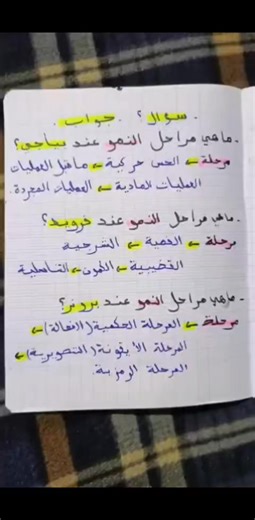 . سؤال ؟ . جواب .
- ماهي مراحل النمو عند بياجي؟
مرحلة ← الحس حركية ← ماقبل العمليات
العمليات المادية ← العمليات المجردة.
- ماهي مراحل النمو عند فرويد؟
مرحلة ← الفمية ← الشرجية
القضيبية ← الكمون ← التناسلية
- ماهي مراحل النمو عند برونر؟
مرحلة ← المرحلة الحكمية (الافعالة) ←
المرحلة الأيقونة (التصويرية) ←
المرحلة الرمزية.